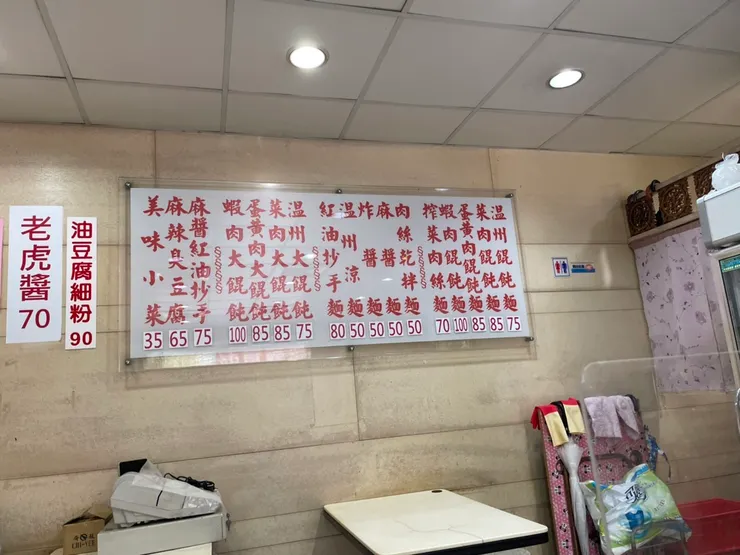 溫州餛飩麵 75
菜肉餛飩麵 85
蛋黃肉餛飩麵 85
蝦肉餛飩麵 100
榨菜肉絲麵 70
肉絲乾拌麵 50
麻醬麵 50
炸醬麵 50
溫州涼麵 50
紅油抄手麵 80
溫州大餛飩 75
菜肉大餛飩 85
蛋黃肉大餛飩 85
蝦肉大餛飩 100
麻醬紅油抄手 75
麻辣臭豆腐 65
美味小菜 35
油豆腐細粉 90
老虎醬 70